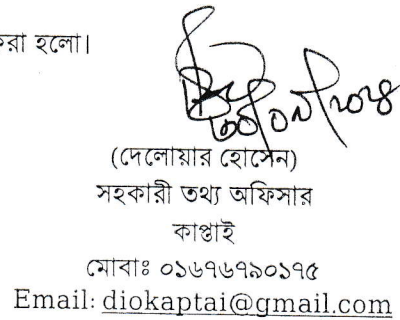 করা হলো।
(দেলোয়ার হোসেন)
সহকারী তথ্য অফিসার
কাপ্তাই
মোবাঃ ০১৬৭৬৭৯০১৭৫
Email: diokaptai@gmail.com